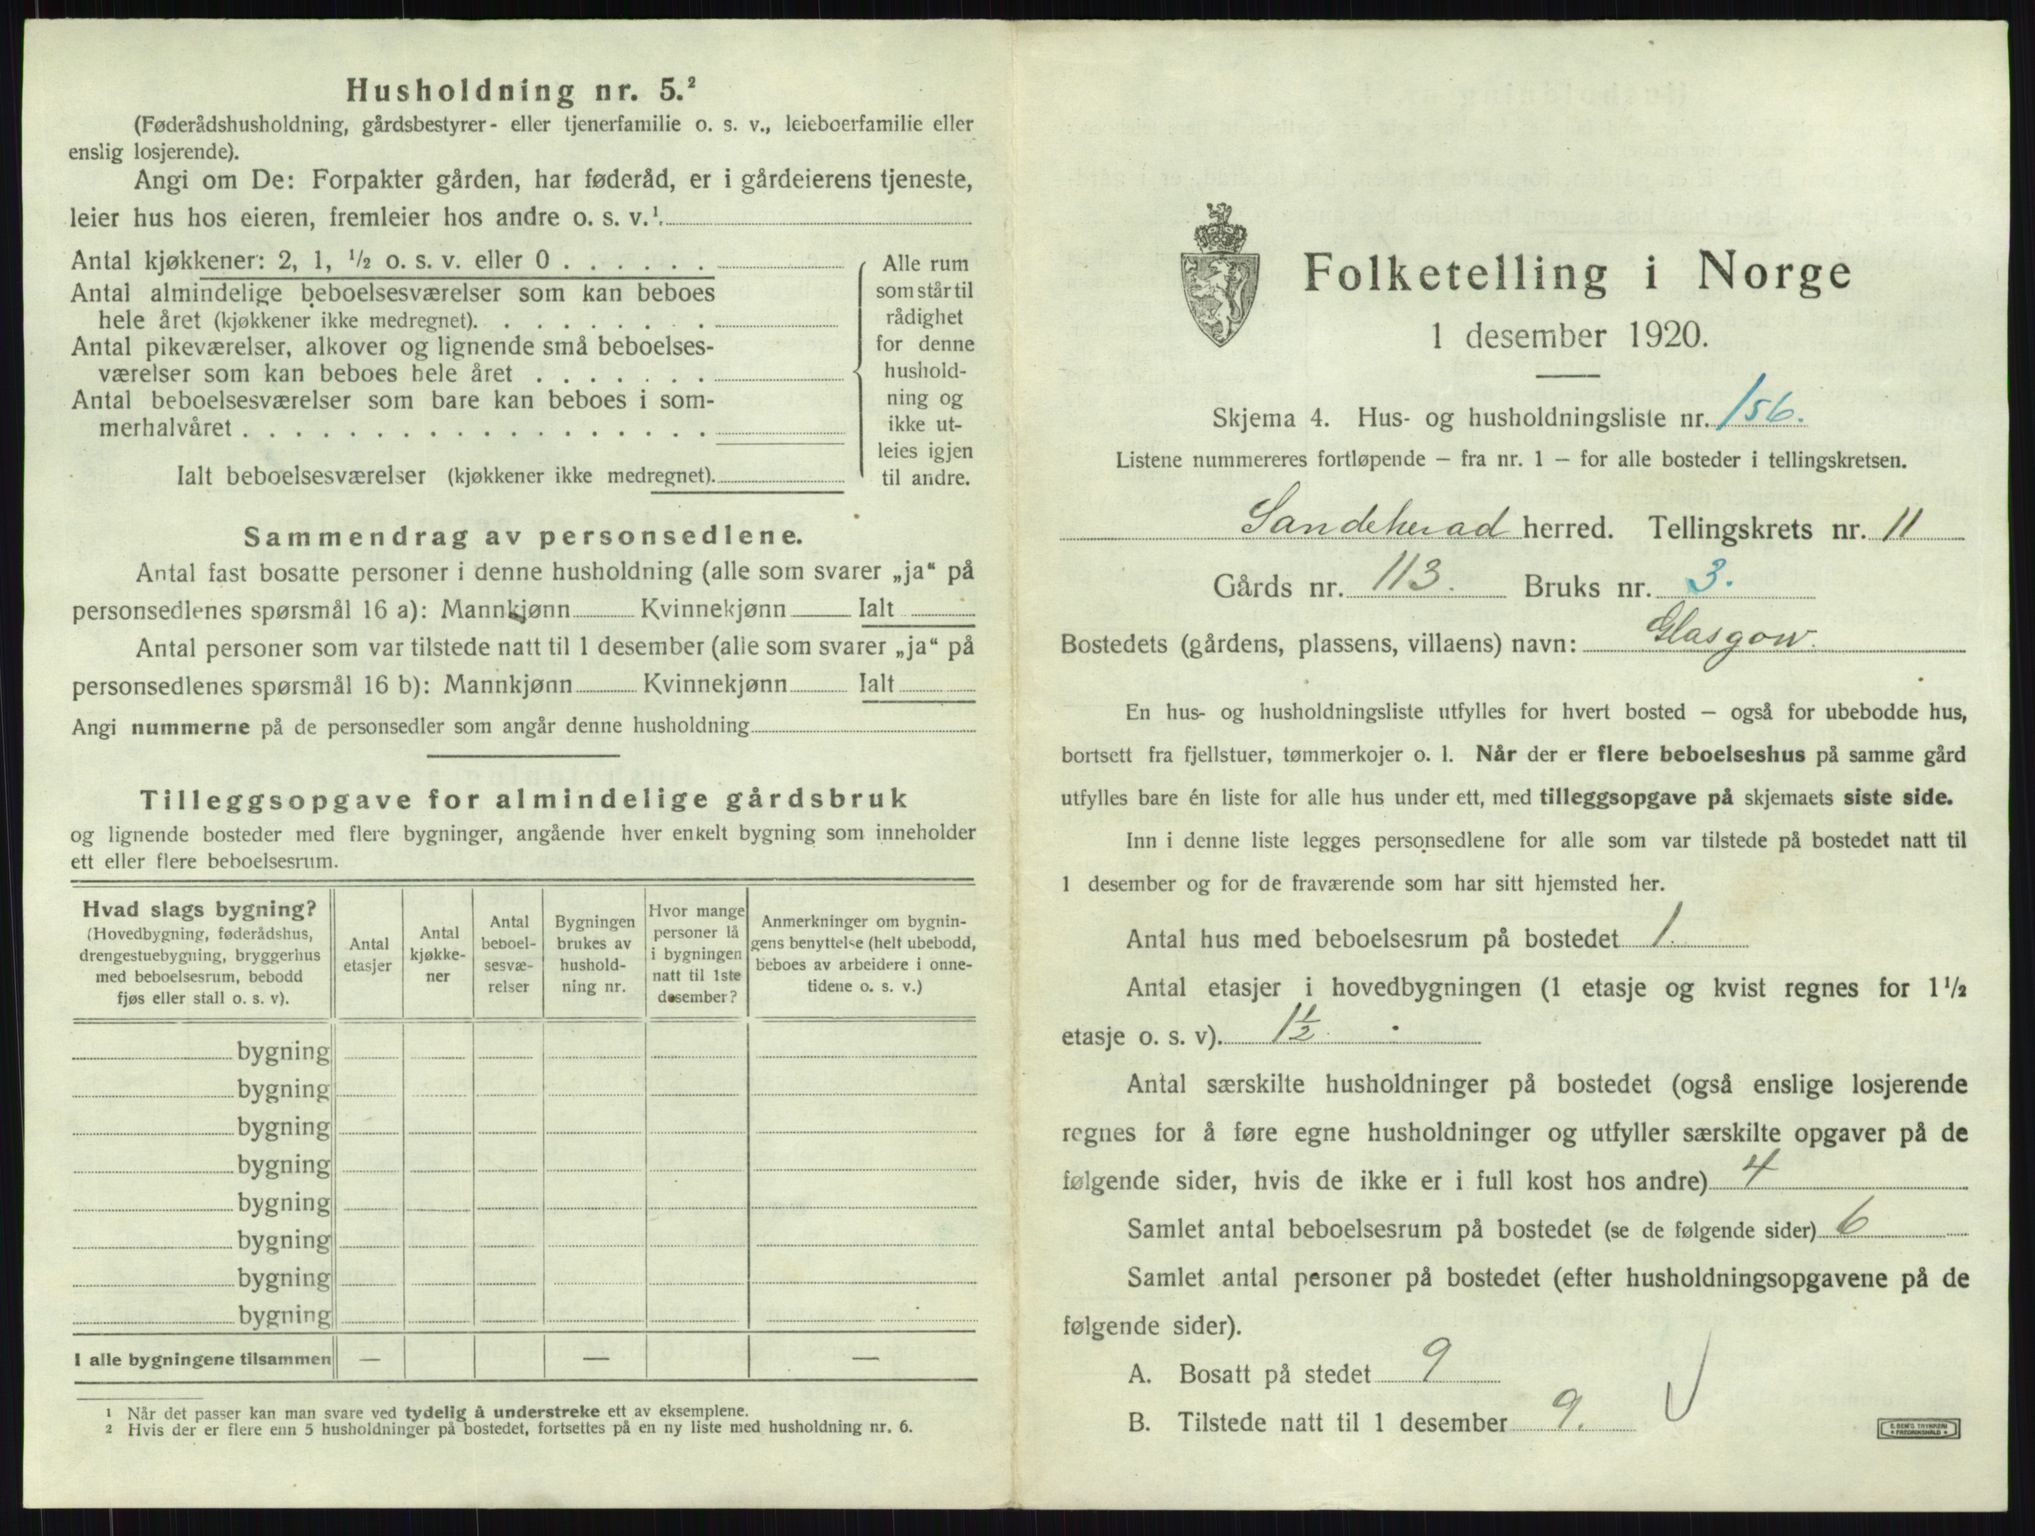 Husholdning nr. 5.²
(Føderådshusholdning, gårdsbestyrer- eller tjenerfamilie o. s. v., leieboerfamilie eller
enslig losjerende).
Angi om De: Forpakter gården, har føderåd, er i gårdeierens tjeneste,
leier hus hos eieren, fremleier hos andre o. s. v.¹.
Antal kjøkkener: 2, 1, ½ o. s. v. eller 0 . . . . . .
Antal almindelige beboelsesværelser som kan beboes
hele året (kjøkkener ikke medregnet). . . . . . . . .
Antal pikeværelser, alkover og lignende små beboelses-
værelser som kan beboes hele året . . . . . . .
Antal beboelsesværelser som bare kan beboes i som-
merhalvåret . . . . . . . . . . . . . . . . . .
Ialt beboelsesværelser (kjøkkener ikke medregnet).
Alle rum
som står til
rådighet
for denne
hushold-
ning og
ikke ut-
leies igjen
til andre.
Sammendrag av personsedlene.
Antal fast bosatte personer i denne husholdning (alle som svarer „ja“ på
personsedlenes spørsmål 16 a): Mannkjønn Kvinnekjønn Ialt
Antal personer som var tilstede natt til 1 desember (alle som svarer „ja“ på
personsedlenes spørsmål 16 b): Mannkjønn Kvinnekjønn Ialt
Angi nummerne på de personsedler som angår denne husholdning
Tilleggsopgave for almindelige gårdsbruk
og lignende bosteder med flere bygninger, angående hver enkelt bygning som inneholder
ett eller flere beboelsesrum.
Hvad slags bygning?
(Hovedbygning, føderådshus,
drengestuebygning, bryggerhus
med beboelsesrum, bebodd
fjøs eller stall o. s. v).
Antal
etasjer
Antal
kjøkke-
ner
Antal
beboel-
sesvæ-
relser
Bygningen
brukes av
hushold-
ning nr.
Hvor mange
personer lå
i bygningen
natt til 1ste
desember?
Anmerkninger om bygnin-
gens benyttelse (helt ubebodd,
beboes av arbeidere i onne-
tidene o. s. v.)
bygning
bygning
bygning
bygning
bygning
bygning
bygning
bygning
I alle bygningene tilsammen — — —
¹ Når det passer kan man svare ved tydelig å understreke ett av eksemplene.
² Hvis der er flere enn 5 husholdninger på bostedet, fortsettes på en ny liste med husholdning nr. 6.
Folketelling i Norge
1 desember 1920.
Skjema 4. Hus- og husholdningsliste nr. 156.
Listene nummereres fortløpende – fra nr. 1 – for alle bosteder i tellingskretsen.
Sandeherad herred. Tellingskrets nr. 11
Gårds nr. 113. Bruks nr. 3.
Bostedets (gårdens, plassens, villaens) navn: Glasgow.
En hus- og husholdningsliste utfylles for hvert bosted – også for ubebodde hus,
bortsett fra fjellstuer, tømmerkojer o. l. Når der er flere beboelseshus på samme gård
utfylles bare én liste for alle hus under ett, med tilleggsopgave på skjemaets siste side.
Inn i denne liste legges personsedlene for alle som var tilstede på bostedet natt til
1 desember og for de fraværende som har sitt hjemsted her.
Antal hus med beboelsesrum på bostedet 1.
Antal etasjer i hovedbygningen (1 etasje og kvist regnes for 1½
etasje o. s. v). 1½
Antal særskilte husholdninger på bostedet (også enslige losjerende
regnes for å føre egne husholdninger og utfyller særskilte opgaver på de
følgende sider, hvis de ikke er i full kost hos andre) 4
Samlet antal beboelsesrum på bostedet (se de følgende sider) 6
Samlet antal personer på bostedet (efter husholdningsopgavene på de
følgende sider).
A. Bosatt på stedet 9
B. Tilstede natt til 1 desember 9.